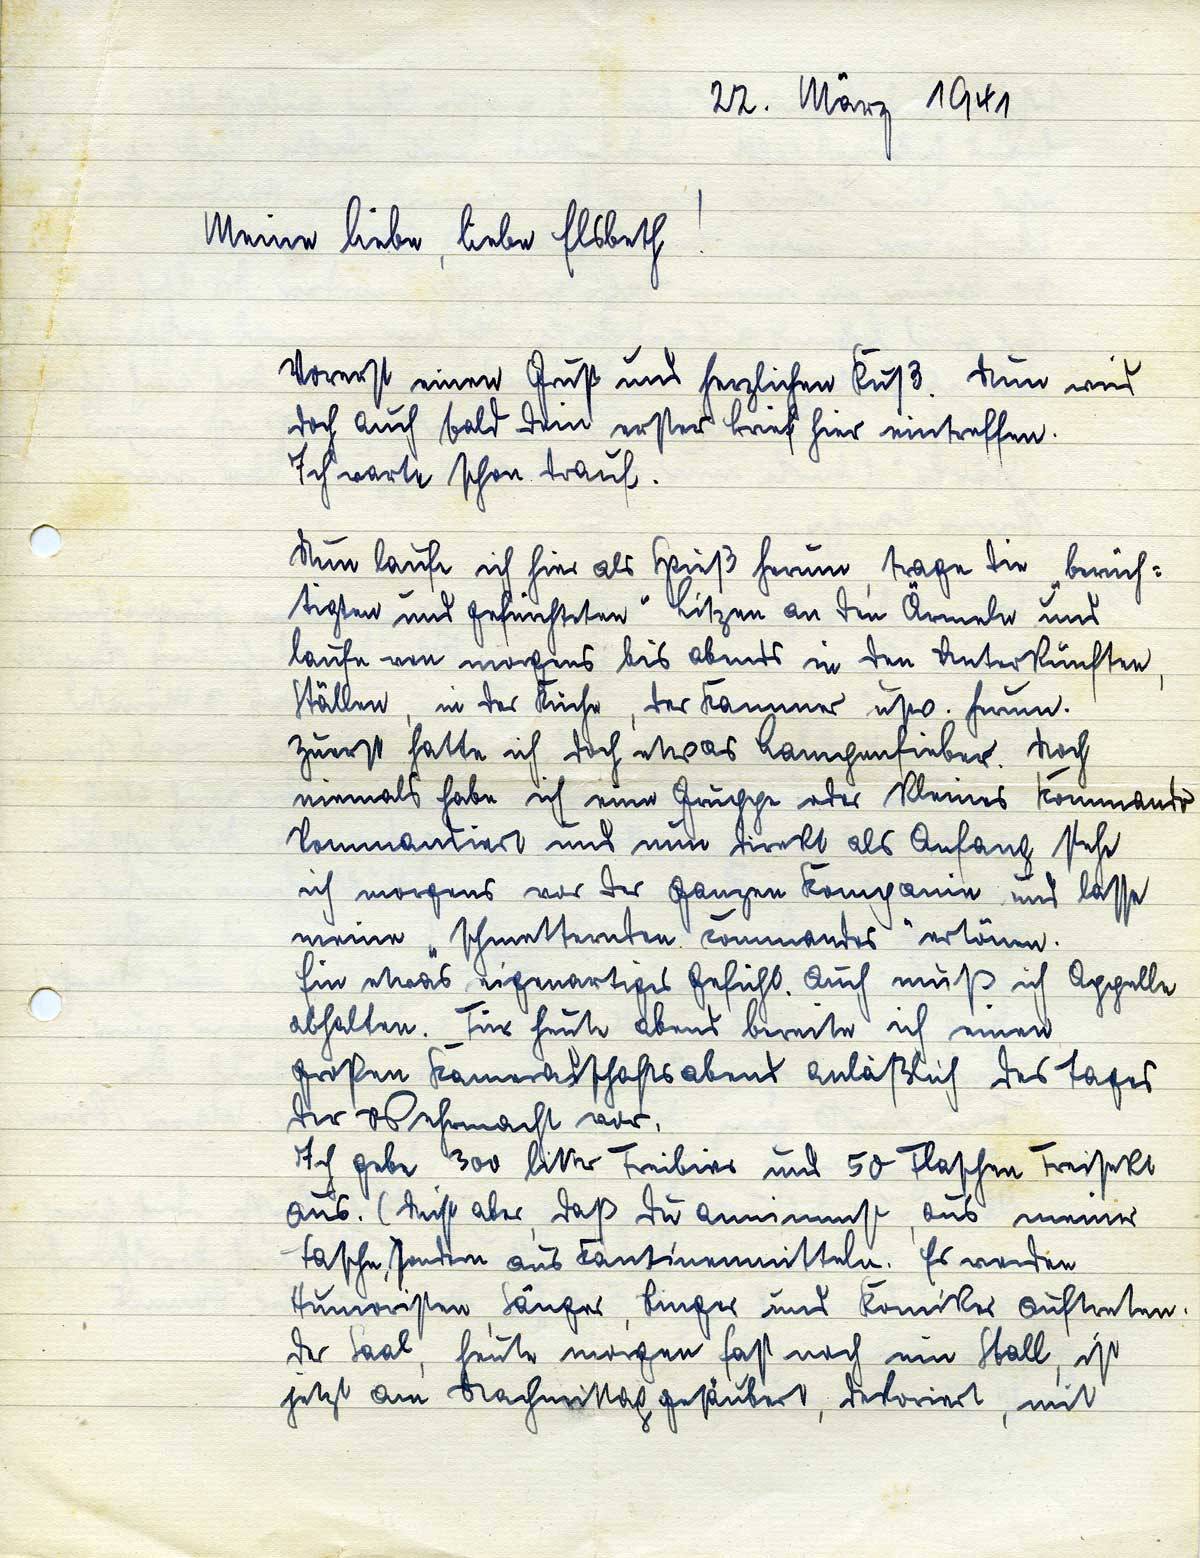 22. März 1941
Meine liebe, liebe Elsbeth!
Vorerst einen Gruß und herzlichen Kuß. Nun wird
doch auch bald Dein erster Brief hier eintreffen.
Ich warte schon drauf.
Nun laufe ich hier als Spieß herum, trage die „berüch=
tigten und gefürchteten“ Litzen an den Ärmeln und
laufe von morgens bis abends in den Unterkünften,
Ställen, in der Küche, der Kammer usw. herum.
Zuerst hatte ich doch etwas Lampenfieber. Noch
niemals habe ich eine Gruppe oder kleines Kommando
kommandiert und nun direkt als Anfang stehe
ich morgens vor der ganzen Kompanie und lasse
meine „schmetternden Kommandos“ ertönen.
Ein etwas eigenartiges Gefühl. Auch muß ich Appelle
abhalten. Für heute abend bereite ich einen
großen Kameradschaftsabend anläßlich des Tages
der Wehrmacht vor.
Ich gebe 300 Liter Freibier und 50 Flaschen Freisekt
aus. (Nicht aber, daß Du annimmst, aus meiner
Tasche, sondern aus Kantinenmitteln. Es werden
Humoristen, Sänger, und Komiker auftreten.
Der Saal, heute morgen fast noch ein Stall, ist
jetzt am Nachmittag gesäubert, dekoriert, mit